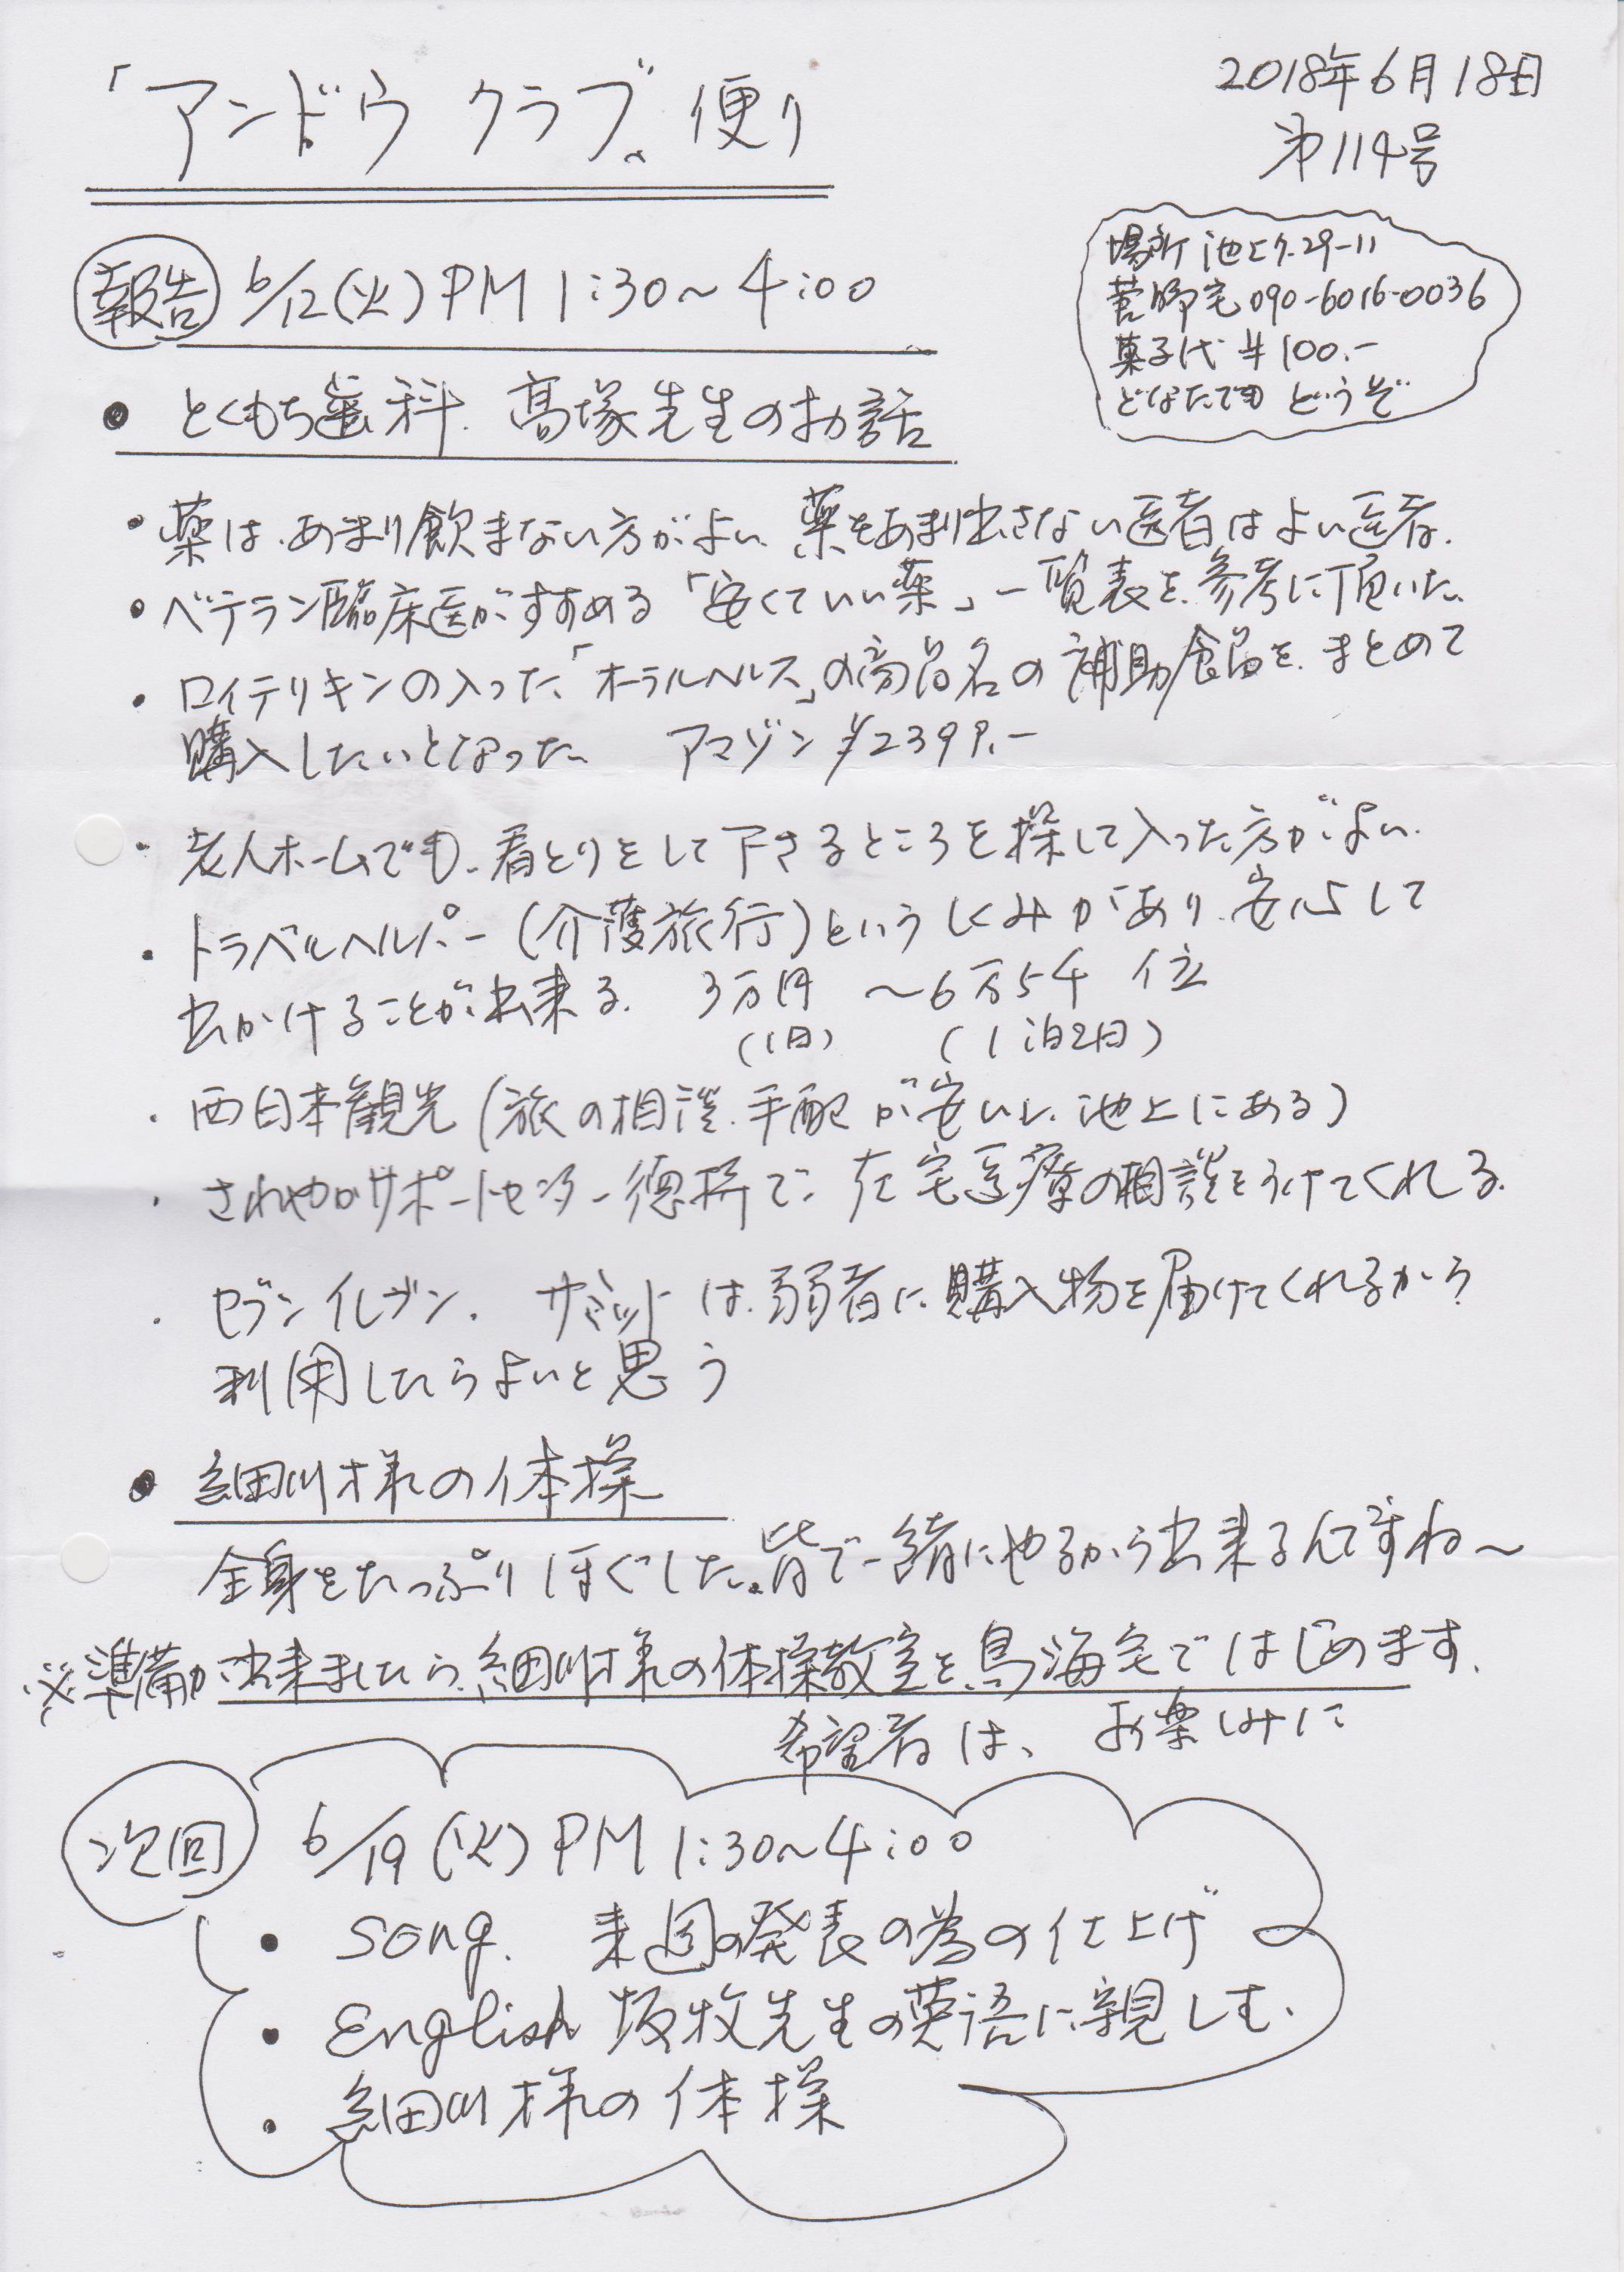 「アンドウ クラブ」便り
2018年6月18日
第114号
場所 池上7-29-11
菅野宅 090-6016-0036
菓子代 ¥100.-
どなたでも どうぞ
報告 6/12(火) PM 1:30～4:00
● とくもち歯科、髙塚先生のお話
・薬は、あまり飲まない方がよい、薬をあまり出さない医者はよい医者.
・ベテラン臨床医がすすめる「安くていい薬」一覧表を、参考に頂いた。
・ロイテリキンの入った「オーラルヘルス」の商品名の補助食品を、まとめて
購入したいとなった。 アマゾン ¥2399.-
・老人ホームでも、看とりをして下さるところを探して入った方がよい.
・トラベルヘルパー(介護旅行)というしくみがあり、安心して
出かけることが出来る. 3万円 ～6万5千 位
(1日) (1泊2日)
・西日本観光(旅の相談、手配が安いし、池上にある)
・さわやかサポートセンター徳持で、在宅医療の相談をうけてくれる.
・セブンイレブン、サミットは、弱者に、購入物を届けてくれるから
利用したらよいと思う
● 細川様の体操
全身をたっぷりほぐした。皆で一緒にやるから出来るんですね～
※準備が出来ましたら、細川様の体操教室を、鳥海宅ではじめます.
希望者は、お楽しみに
次回 6/19(火) PM 1:30～4:00
● song. 来週の発表の為の仕上げ
● English 坂牧先生の英語に親しむ、
● 細川様の体操